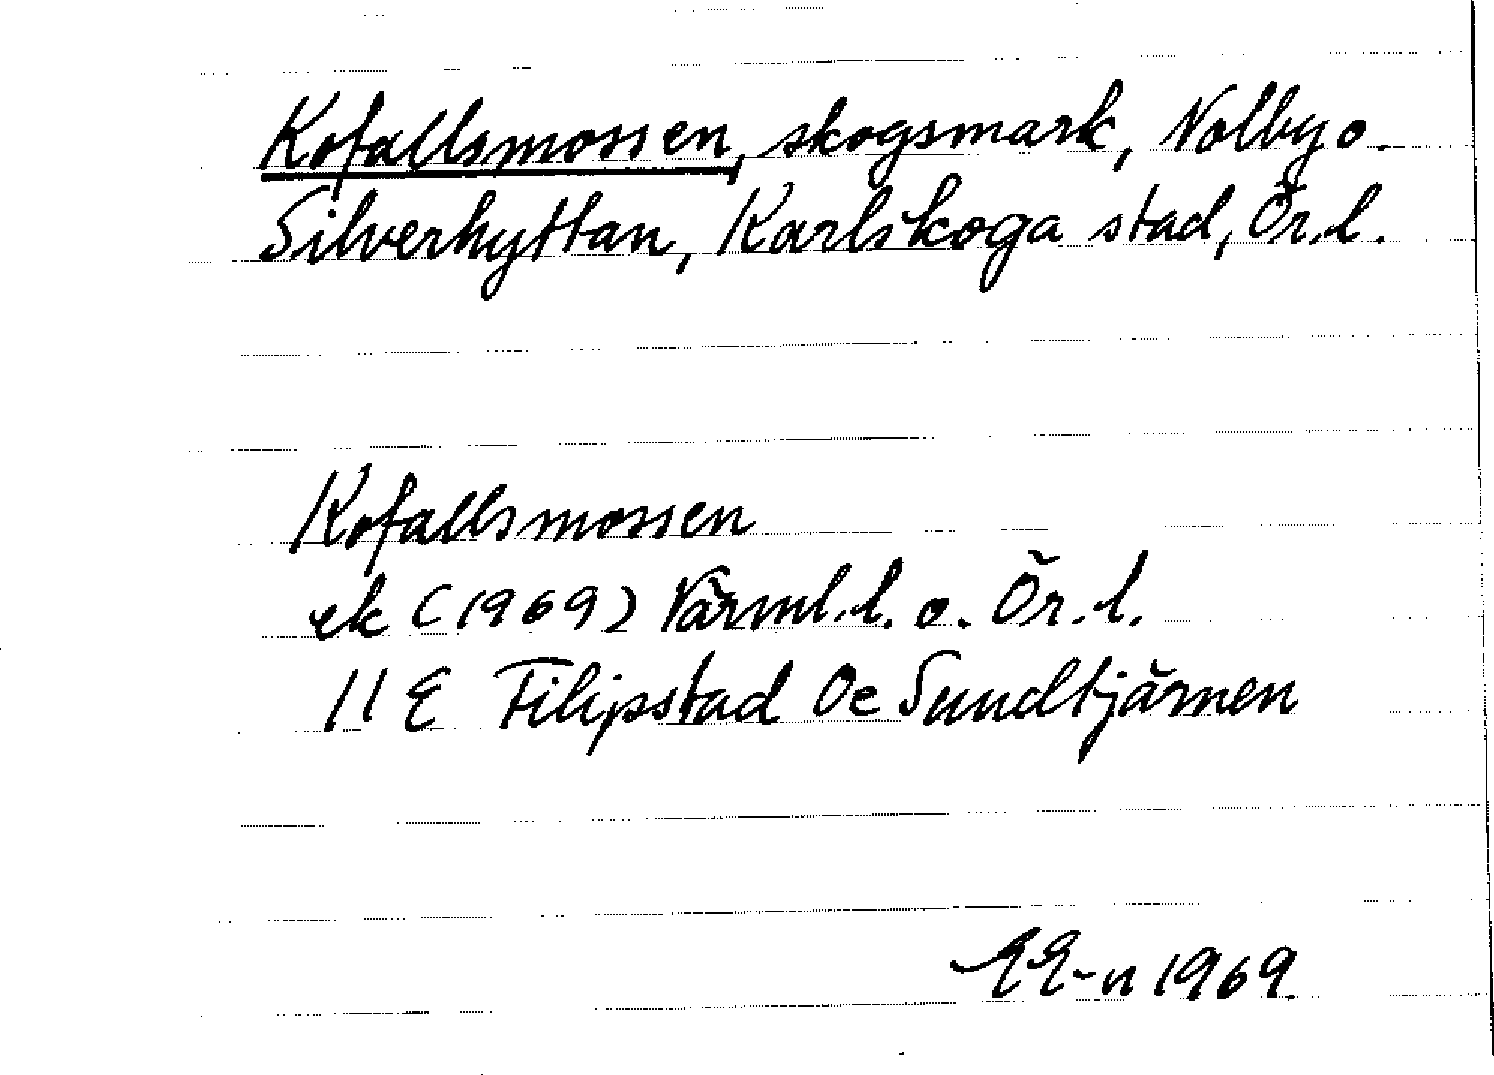 Kofallsmossen, skogsmark, Nolby o.
Silverhyttan, Karlskoga stad, Ör.l.
Kofallsmossen
ek (1969) Värml.l. o. Ör.l.
11 E Filipstad Oe Sundtjärnen
EE-n 1969